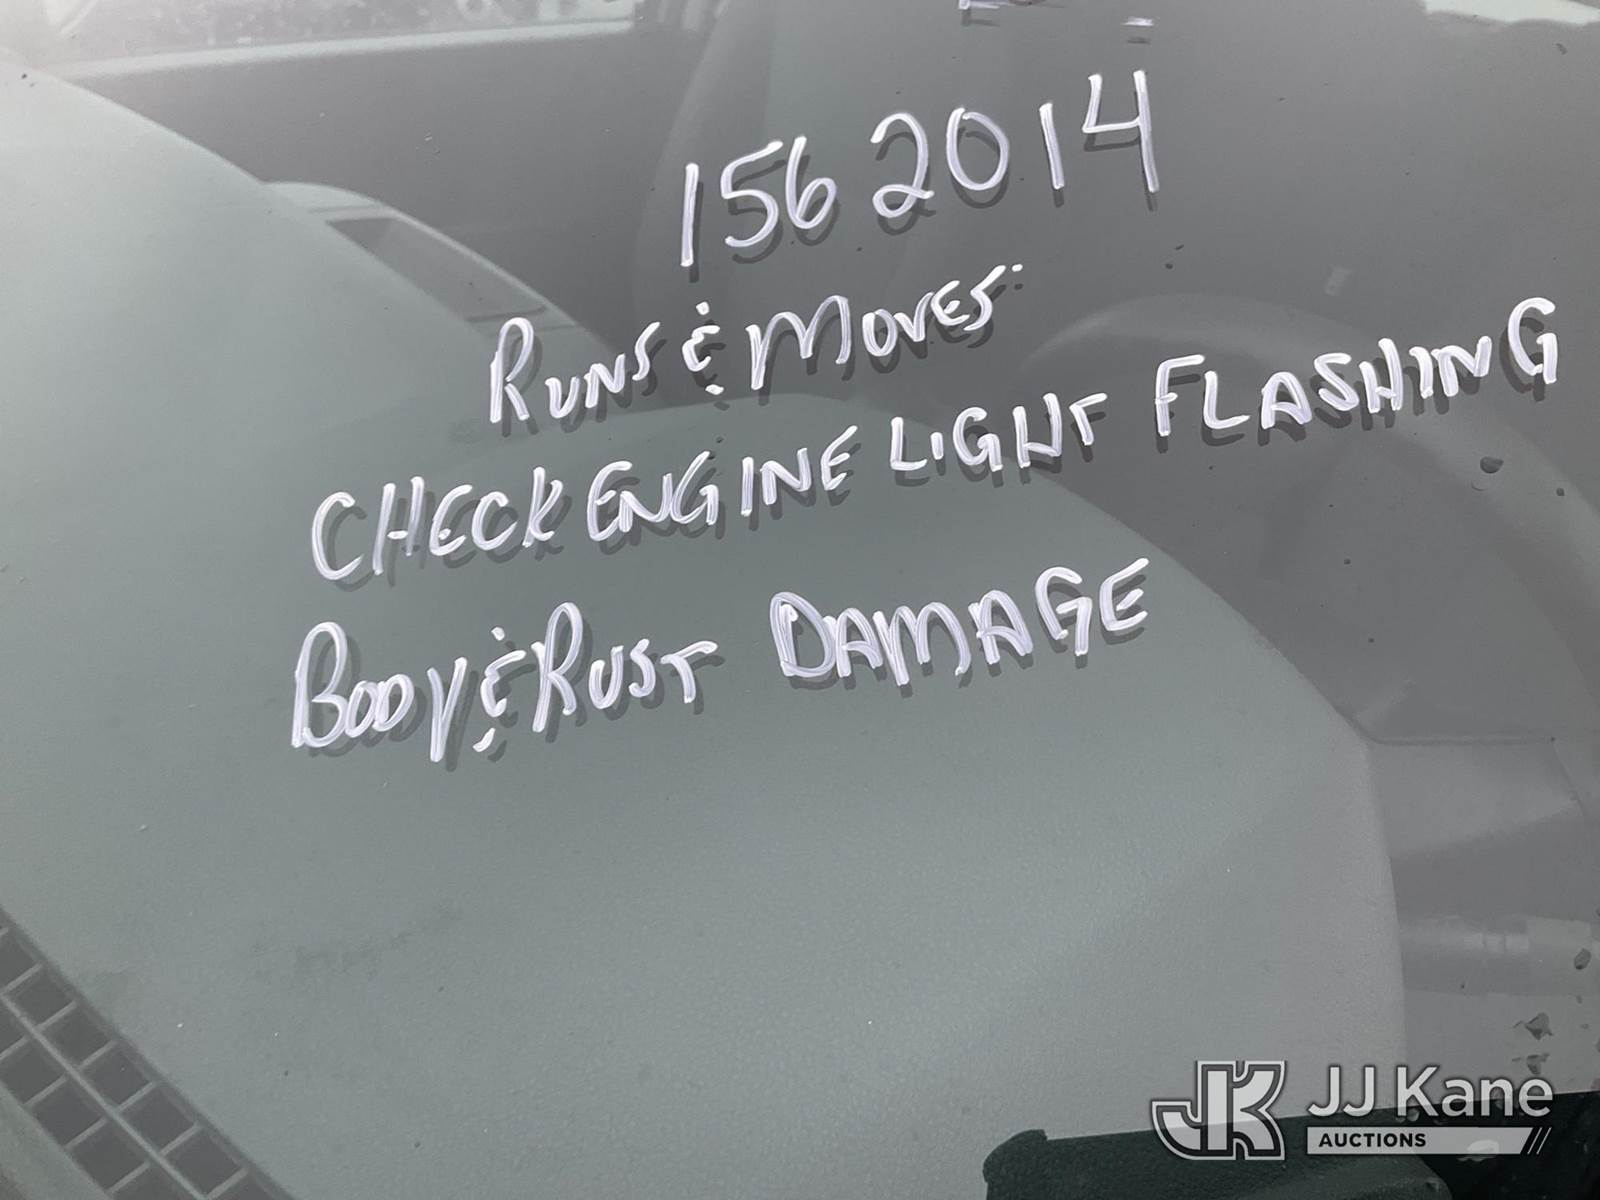 1562014
RUNS & MOVES
CHECK ENGINE LIGHT FLASHING
BODY & RUST DAMAGE
JK JJ Kane
AUCTIONS